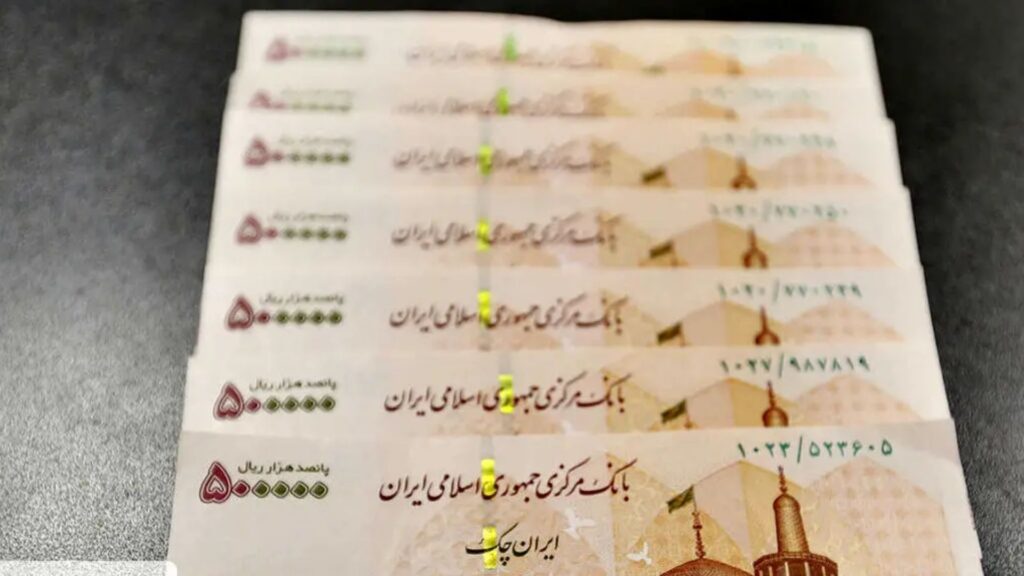 ۵۰۰۰۰۰
بانک مرکزی جمهوری اسلامی ایران
۵۰۰۰۰۰
بانک مرکزی جمهوری اسلامی ایران
۵۰۰۰۰۰
بانک مرکزی جمهوری اسلامی ایران
پانصد هزار ریال
۵۰۰۰۰۰
بانک مرکزی جمهوری اسلامی ایران
پانصد هزار ریال
۵۰۰۰۰۰
۱۰۲۷/۹۸۷۸۱۹
بانک مرکزی جمهوری اسلامی ایران
پانصد هزار ریال
۵۰۰۰۰۰
۱۰۲۳/۵۲۳۶۰۵
بانک مرکزی جمهوری اسلامی ایران
پانصد هزار ریال
۵۰۰۰۰۰
ایران چک